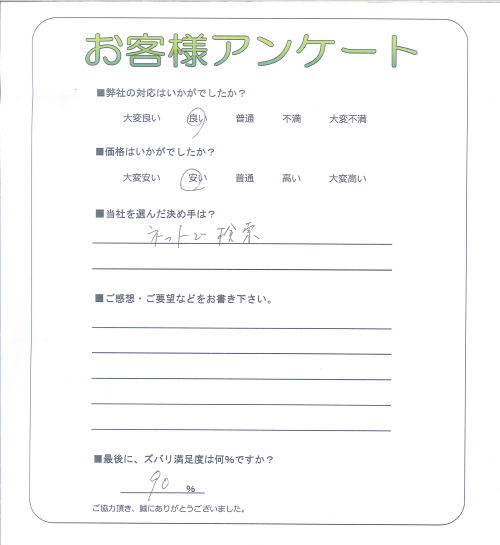 お客様アンケート
■弊社の対応はいかがでしたか？
大変良い 良い 普通 不満 大変不満
■価格はいかがでしたか？
大変安い 安い 普通 高い 大変高い
■当社を選んだ決め手は？
ネットで検索
■ご感想・ご要望などをお書き下さい。
■最後に、ズバリ満足度は何%ですか？
90 %
ご協力頂き、誠にありがとうございました。